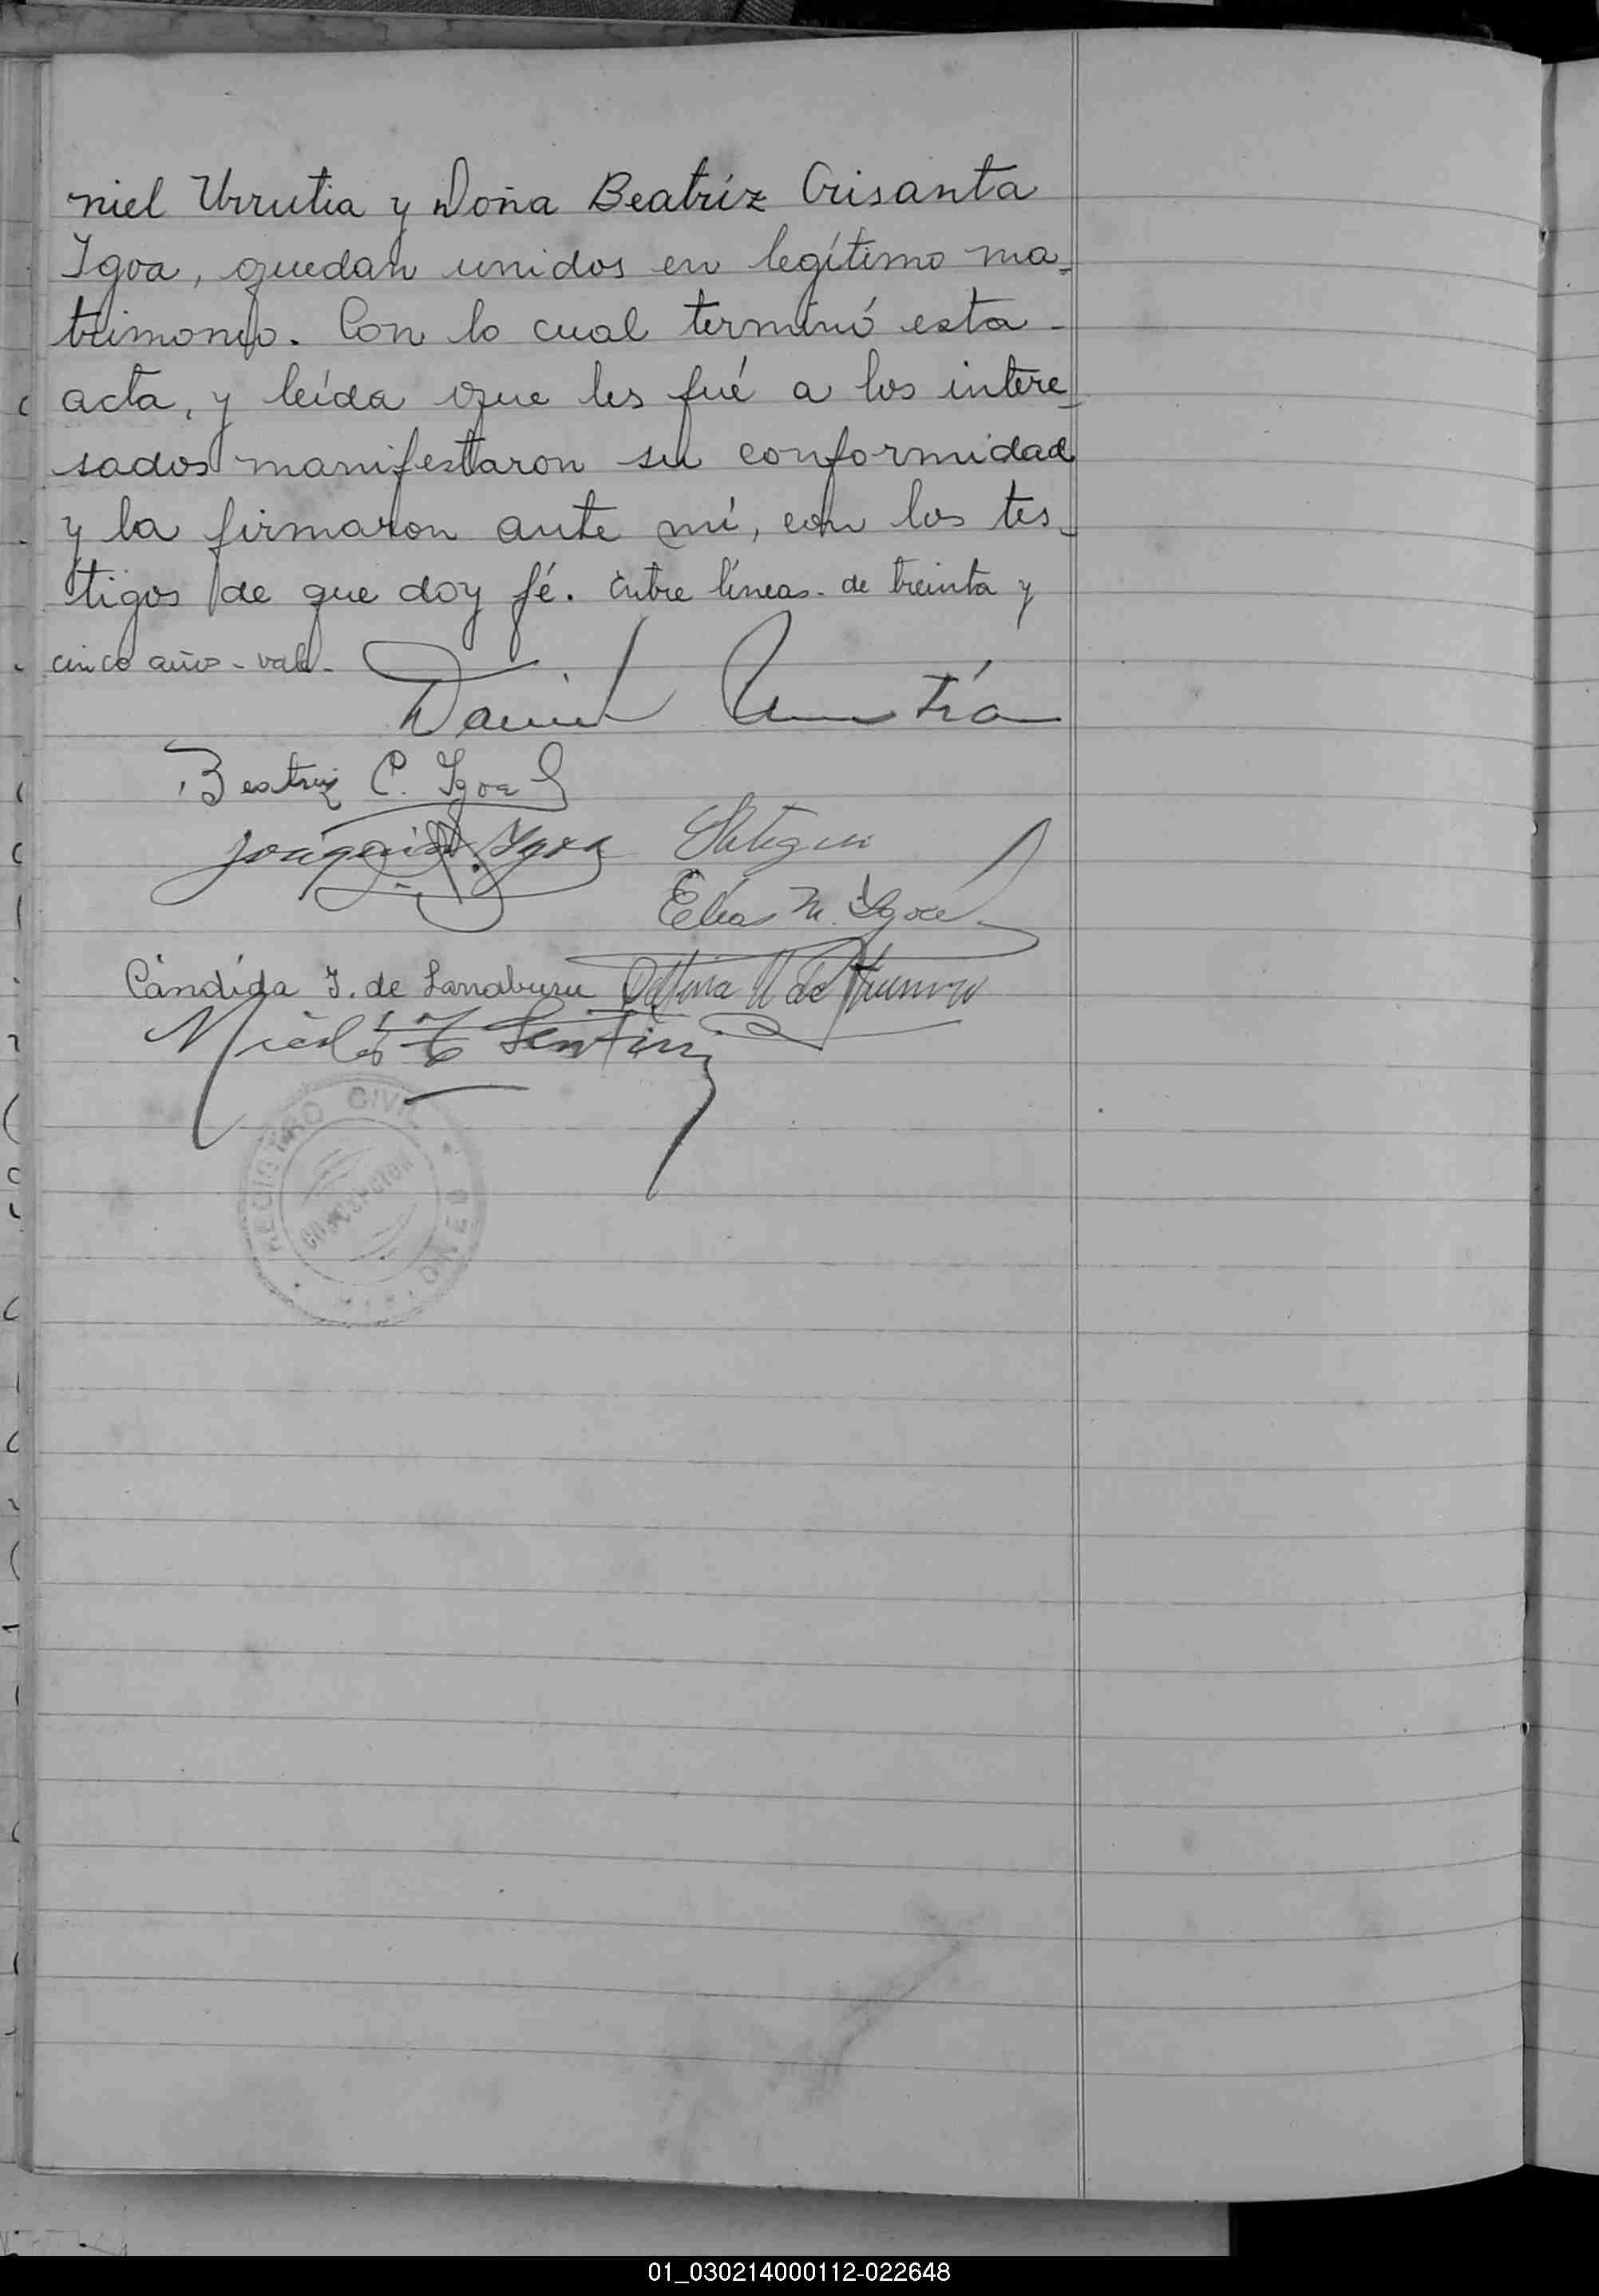 niel Urrutia y Doña Beatríz Crisanta
Igoa, quedan unidos en legítimo ma-
trimonio. Con lo cual terminó esta -
acta, y leída que les fué a los intere-
sados manifestaron su conformidad
y la firmaron ante mí, con los tes-
tigos de que doy fé. Entre líneas - de treinta y
cinco años - vale -
Daniel Urrutia
Beatriz C. Igoa
Joaquin Igoa
Elias M. Igoa
Cándida I. de Larraburu Delfina U de
REGISTRO CIVIL
01_030214000112-022648